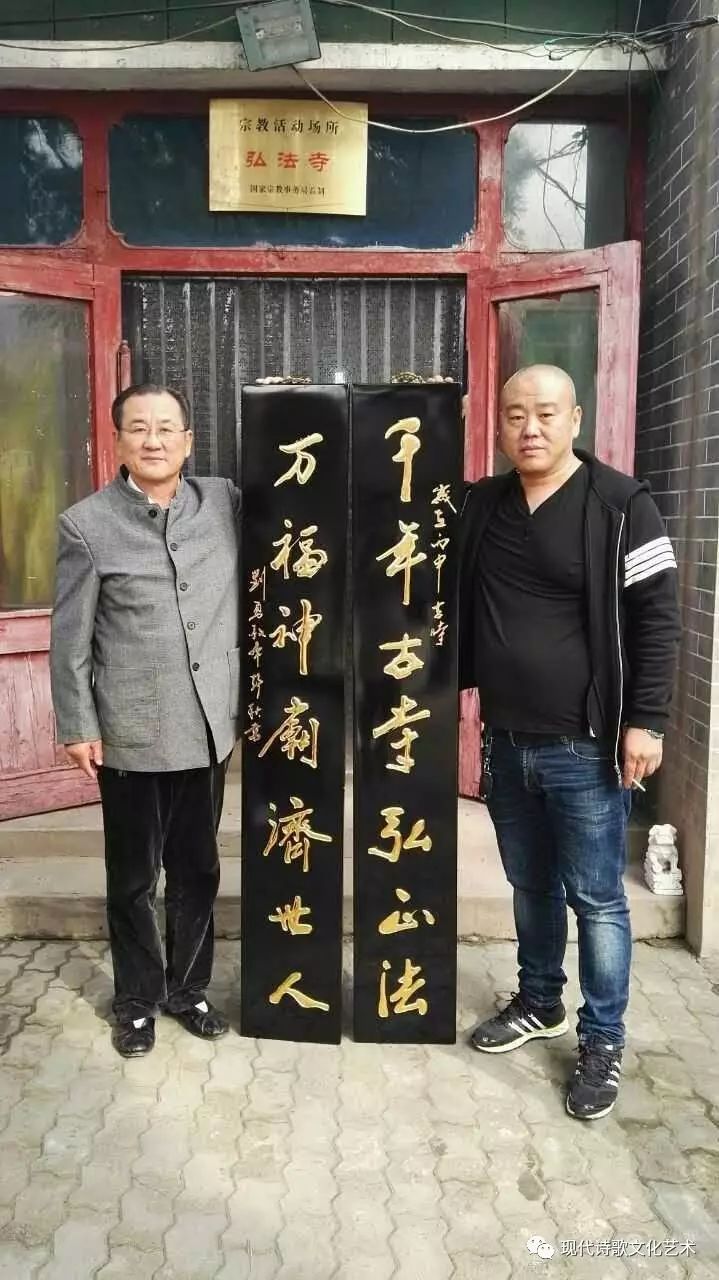 宗教活动场所
弘法寺
国家宗教事务局监制
岁在丙申 吉时
千年古寺弘正法
万福神庙济世人
刘勇敬
现代诗歌文化艺术